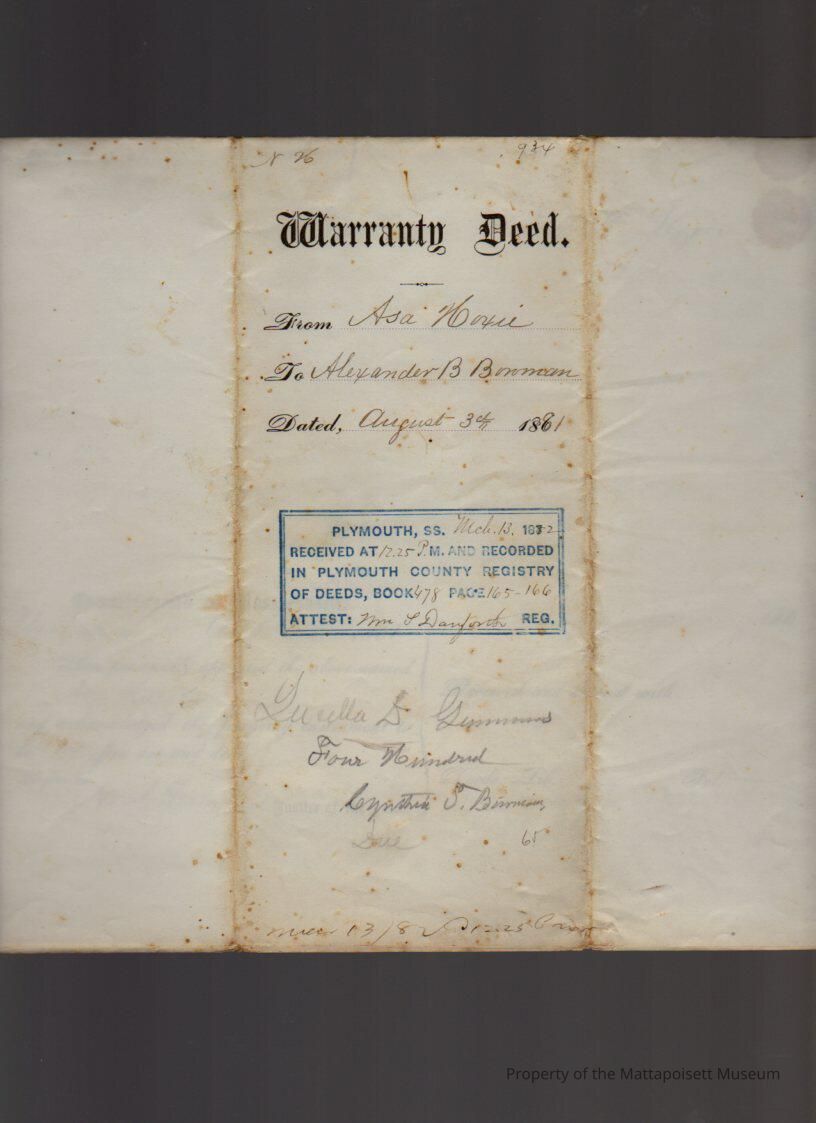 N 26 934
Warranty Deed.
From Asa Hoxie
To Alexander B Bowman
Dated, August 3d 1881
PLYMOUTH, SS. Mch. 13, 1882
RECEIVED AT 12.25 P.M. AND RECORDED
IN PLYMOUTH COUNTY REGISTRY
OF DEEDS, BOOK 478 PAGE 165-166
ATTEST: Wm S Danforth REG.
Lucilla D Gummons
Four Hundred
Cynthia T. Bowman
65
13/82 12.25
Property of the Mattapoisett Museum